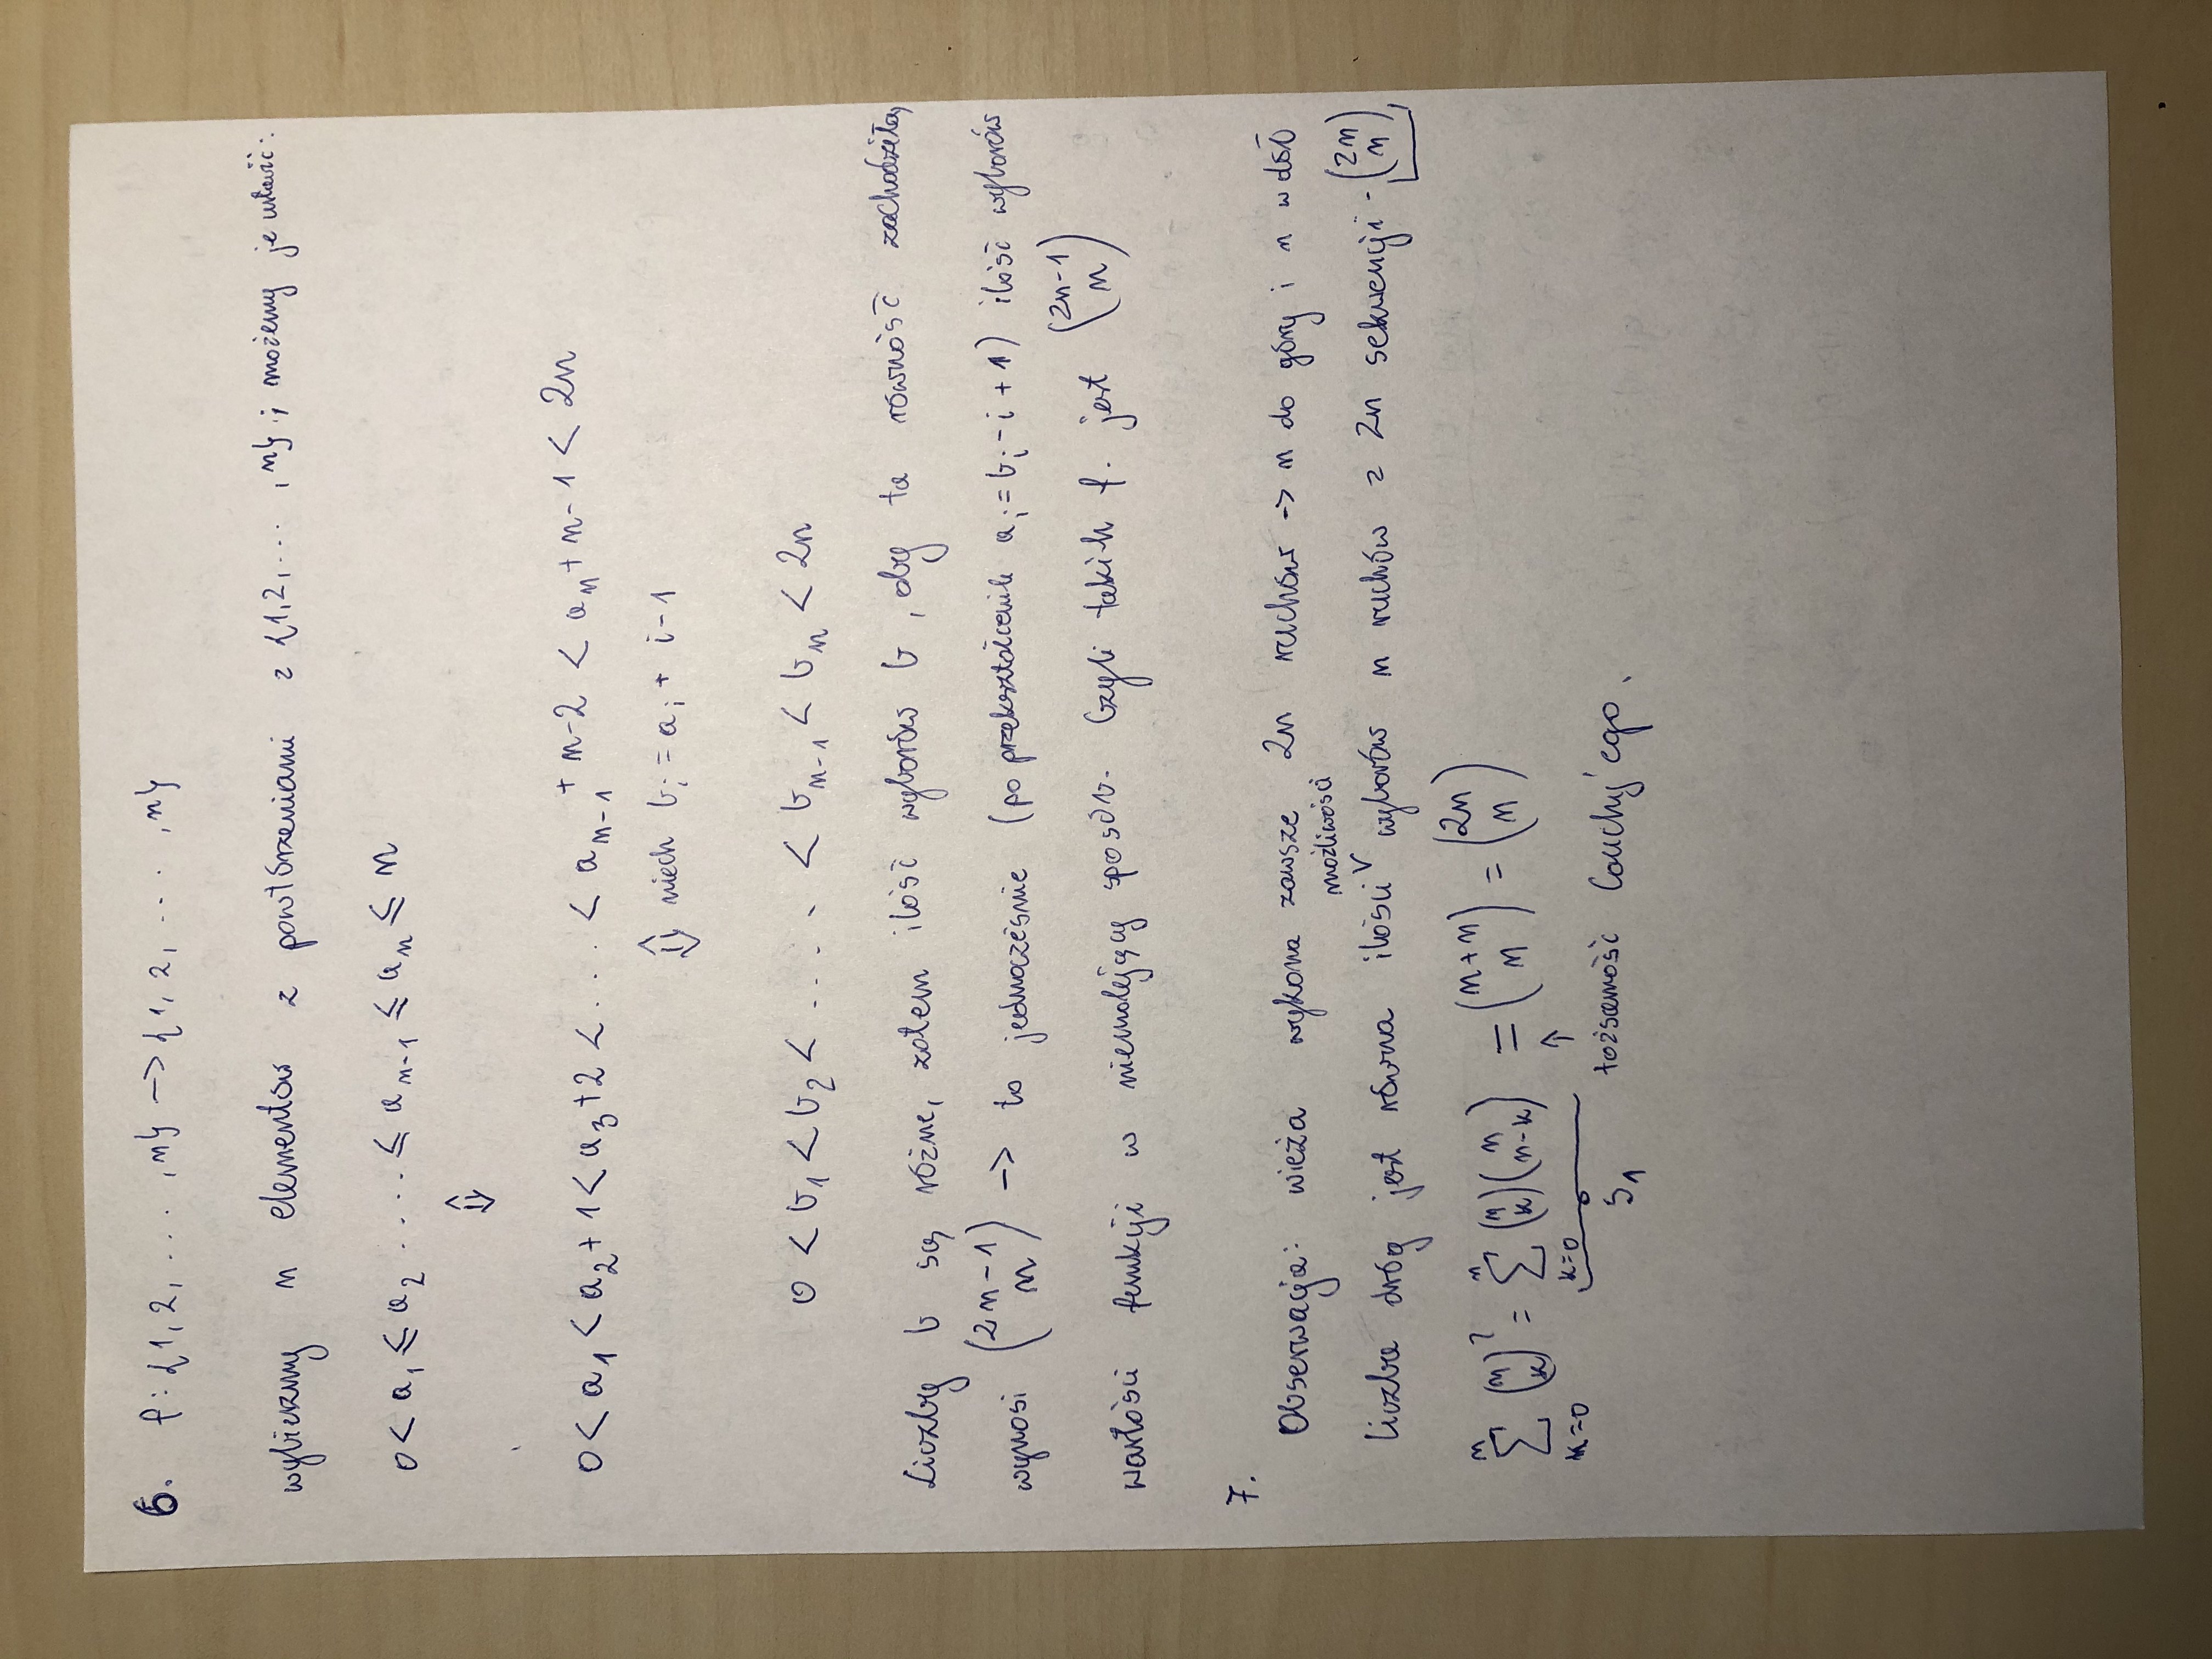 6. f: {1, 2, ... , n} -> {1, 2, ... , n}
wybierzmy n elementów z powtórzeniami z {1,2, ... , n} ; możemy je ustawić:
0 < a₁ ≤ a₂ .... ≤ aₙ₋₁ ≤ aₙ ≤ n
⇕
0 < a₁ < a₂ + 1 < a₃ + 2 < ... < aₙ₋₁ + n-2 < aₙ + n-1 < 2n
⇕ niech bᵢ = aᵢ + i-1
0 < b₁ < b₂ < .... < bₙ₋₁ < bₙ < 2n
Liczby b są różne, zatem ilość wyborów b, aby ta równość zachodziła,
wynosi (2n-1 / n) -> to jednocześnie (po przekształceniu aᵢ = bᵢ - i + 1) ilość wyborów
wartości funkcji w niemalejący sposób. Czyli takich f. jest (2n-1 / n)
7.
Obserwacja: wieża wykona zawsze 2n ruchów -> n do góry i n w dół
możliwości
liczba dróg jest równa ilości ∨ wyborów n ruchów z 2n sekwencji - (2n / n)
∑ₖ₌₀ⁿ (n / k)² = ∑ₖ₌₀ⁿ (n / k)(n / n-k) = (n+n / n) = (2n / n)
S₁ ↑ tożsamość Cauchy'ego.